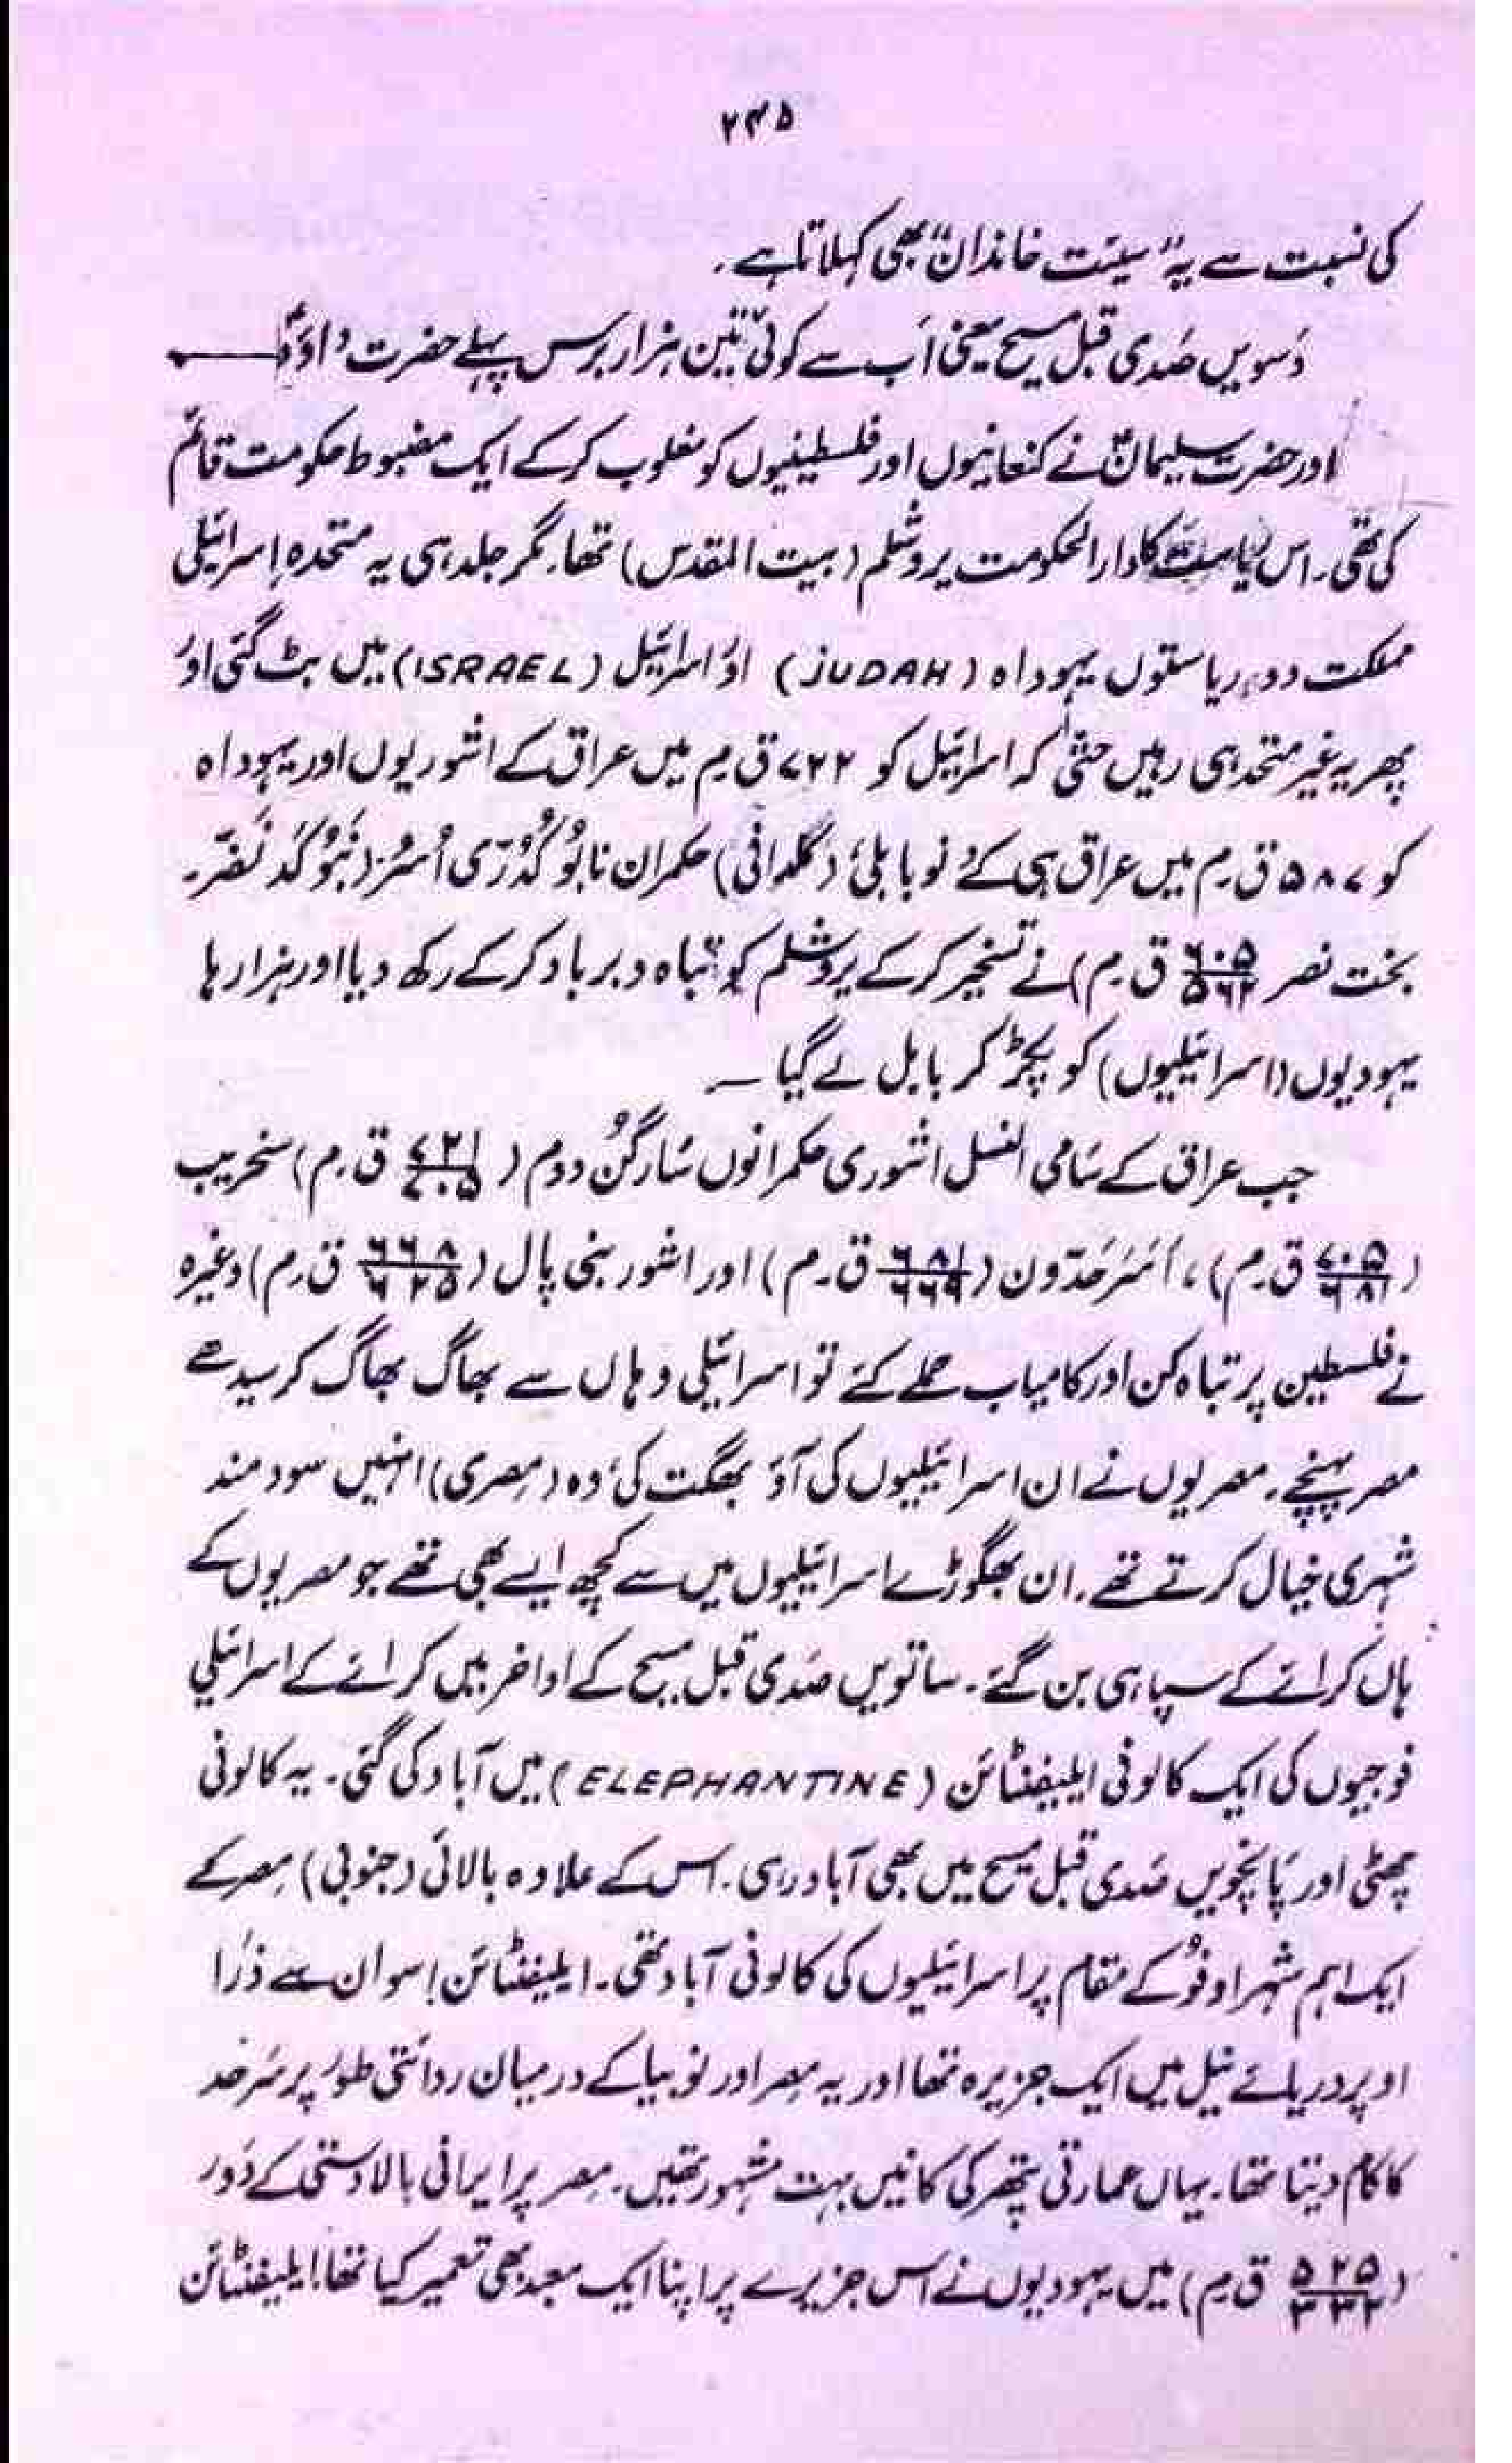 ۲۳۵
کی نسبت سے یہ "سیئت خاندان" بھی کہلاتا ہے۔
دَسویں صَدی قبل مسیح یعنی اَب سے کوئی تین ہزار برس پہلے حضرت داؤدؑ ـــــ
اور حضرت سلیمانؑ نے کنعانیوں اور فلسطینیوں کو مغلوب کر کے ایک مضبوط حکومت قائم
کی تھی۔ اس ریاست کا دارالحکومت یروشلم (بیت المقدس) تھا۔ مگر جلد ہی یہ متحدہ اِسرائیلی
مملکت دو ریاستوں یہوداہ (JUDAH) اور اسرائیل (ISRAEL) میں بٹ گئی اور
پھر یہ غیر متحد ہی رہیں حتیٰ کہ اسرائیل کو ۷۲۲ ق م میں عراق کے اشوریوں اور یہوداہ
کو ۵۸۷ ق۔م میں عراق ہی کے نو بابلی (کلدانی) حکمران نابُو کُدُرّی اُسُر (نَبُو کَد نَضَر۔
بخت نصر ۶۰۵/۵۶۲ ق۔م) نے تسخیر کر کے یروشلم کو تباہ و برباد کر کے رکھ دیا اور ہزارہا
یہودیوں (اسرائیلیوں) کو پکڑ کر بابل لے گیا ۔
جب عراق کے سَامی النسل اشوری حکمرانوں سَارگُن دوم (۷۲۱/۷۰۵ ق۔م) سنحریب
(۷۰۵/۶۸۱ ق۔م)، اَسَرحَدّون (۶۸۱/۶۶۹ ق۔م) اور اشور بنی پال (۶۶۸/۶۲۵ ق۔م) وغیرہ
نے فلسطین پر تباہ کن اور کامیاب حملے کئے تو اسرائیلی وہاں سے بھاگ بھاگ کر سیدھے
مصر پہنچے۔ مصریوں نے ان اسرائیلیوں کی آؤ بھگت کی، وہ (مِصری) انہیں سود مند
شہری خیال کرتے تھے۔ ان بھگوڑے اسرائیلیوں میں سے کچھ ایسے بھی تھے جو مصریوں کے
ہاں کرائے کے سپاہی بن گئے۔ ساتویں صَدی قبل مسیح کے اواخر میں کرائے کے اسرائیلی
فوجیوں کی ایک کالونی ایلیفنٹائن (ELEPHANTINE) میں آباد کی گئی۔ یہ کالونی
چھٹی اور پَانچویں صَدی قبل مسیح میں بھی آباد رہی۔ اس کے علاوہ بالائی (جنوبی) مِصر کے
ایک اہم شہر اوفُو کے مقام پر اسرائیلیوں کی کالونی آباد تھی۔ ایلیفنٹائن اِسوان سے ذرَا
اوپر دریائے نیل میں ایک جزیرہ تھا اور یہ مِصر اور نوبیا کے درمیان روائتی طور پر سَرحَد
کا کام دیتا تھا۔ یہاں عمارتی پتھر کی کانیں بہت مشہور تھیں۔ مِصر پر ایرانی بالا دستی کے دَور
(۵۲۵/۳۳۲ ق۔م) میں یہودیوں نے اس جزیرے پر اپنا ایک معبد بھی تعمیر کیا تھا! ایلیفنٹائن